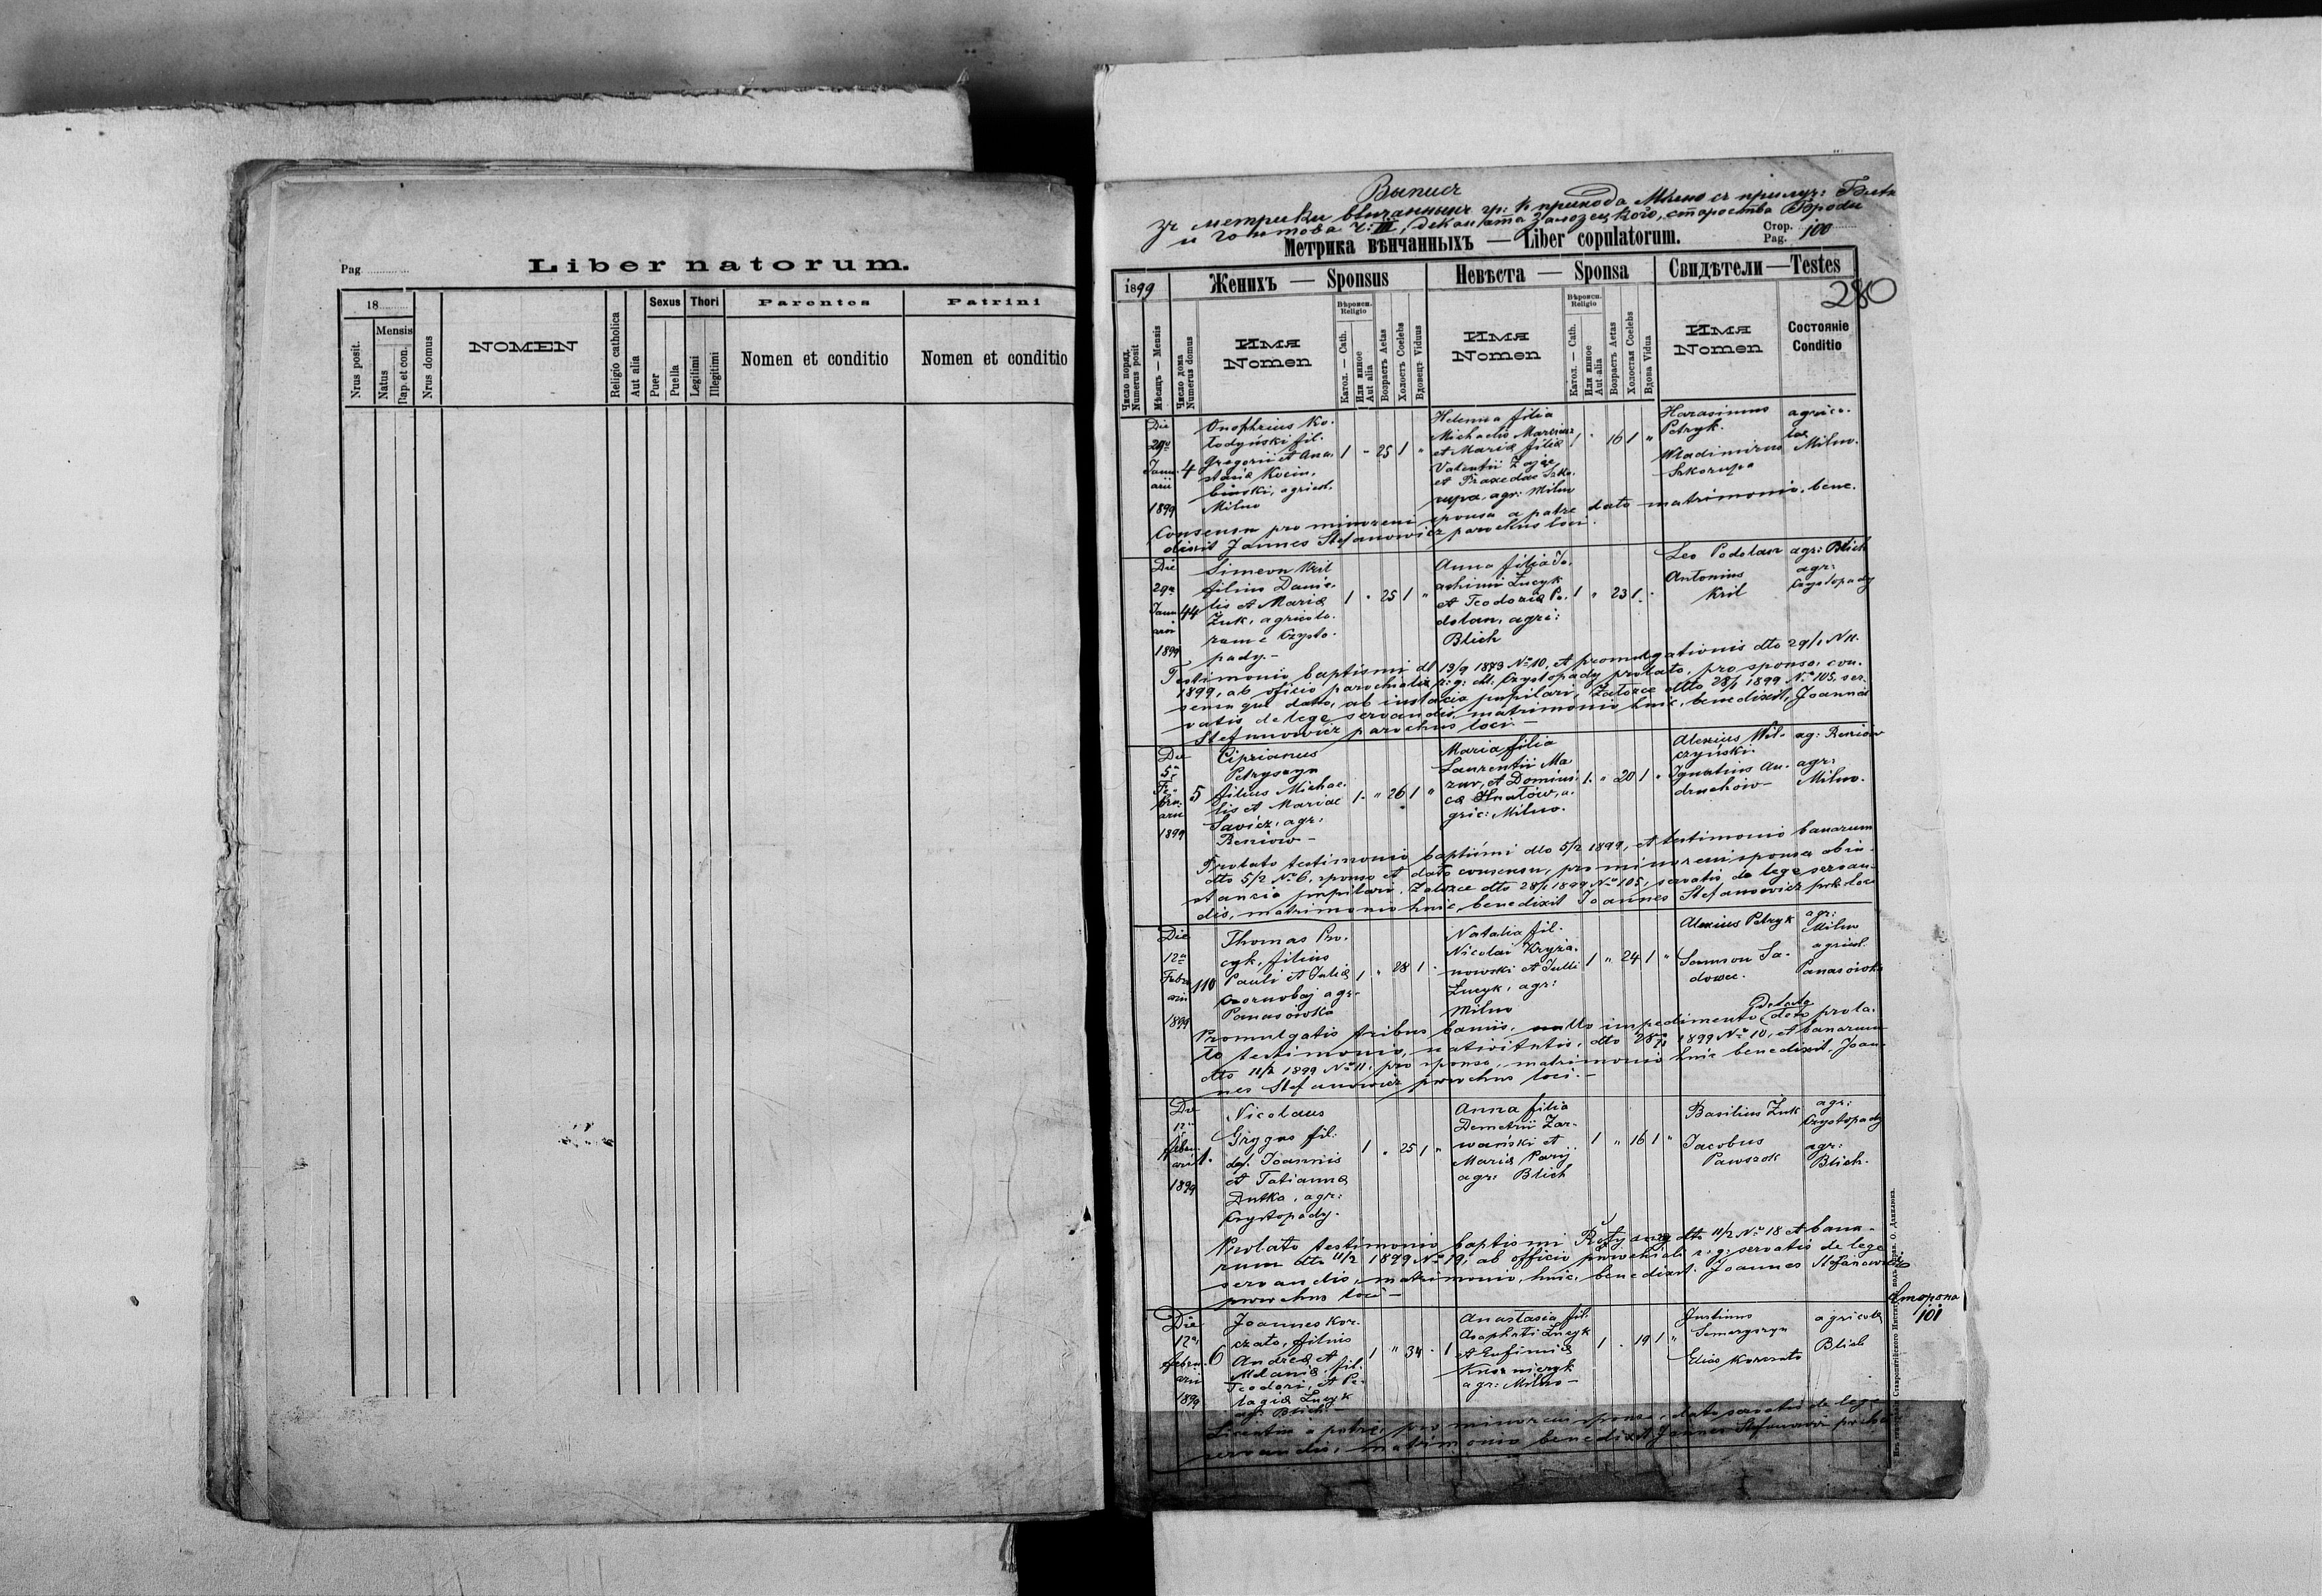 Pag.
Liber natorum.
18
Mensis
Sexus
Thori
Parentes
Patrini
Nrus posit.
Natus
Пap. et con.
Nrus domus
NOMEN
Religio catholica
Aut alia
Puer
Puella
Legitimi
Illegitimi
Nomen et conditio
Nomen et conditio
Выпись
зъ метрики вѣнчанныхъ гр: к прихода Мильно съ прилуч:
и Гонтова Ч: III, деканата Залозецкого, староства Броды
Метрика вѣнчанныхъ — Liber copulatorum.
Стор. Pag. 100
280
1899
Женихъ — Sponsus
Невѣста — Sponsa
Свидѣтели — Testes
Число поряд. Numerus posit
Мѣсяцъ — Mensis
Число дома Numerus domus
Имя Nomen
Вѣроисп. Religio
Катол. — Cath.
Или инное Aut alia
Возрастъ Aetas
Холостъ Coelebs
Вдовецъ Viduus
Имя Nomen
Вѣроисп. Religio
Катол. — Cath.
Или инное Aut alia
Возрастъ Aetas
Холостая Coelebs
Вдова Vidua
Имя Nomen
Состояніе Conditio
Die 29a Januarii 1899
4
Onophrius Ko-
łodyński fil.
Gregorii et Ana-
stasiæ Kocim-
biński, agricol.
Milno
1 " 25 1 "
Helenna filia
Michaelis
et Mariæ filiæ
Valentii Zając
et Praxedae Szko-
rupa, agr: Milno
1 " 16 1 "
Harasimus
Petryk.
Wladimirus
Szkorupa
agrico-
læ
Milno.
Consensu pro minoreni sponsa a patre dato matrimonio, bene-
dixit Joannes Stefanowicz parochus loci.
Die 29a Januarii 1899
44
Simeon Kril
filius Danie-
lis et Mariæ
Żuk, agricola-
rum e Czysto-
pady.—
1 " 25 1 "
Anna filia Jo-
achimi Łucyk
et Teodoriæ Po-
dolan, agri:
Blich
1 " 23 1 "
Leo Podolan agr: Blich
Antonius
Kril
agr:
Czystopady
Testimonio baptismi dt 13/9 1873 No 10, et promulgationis dto 29/1 No 11.
1899, ab oficio parochiali r: g: cat. Czystopady prolato, pro sponso, con-
sensu que dato, ab instancia pupilari, Załozce dtto 28/1 1899 No 105, ser-
vatis de lege servandis, matrimonio huic, benedixit, Joannes
Stefanowicz parochus loci.—
Die 5a Februarii 1899
5
Ciprianus
Petryszyn
filius Michae-
lis et Mariae
Savicz, agr:
Reniow—
1. " 26 1 "
Maria filia
Laurentii Ma
zur, et Domini-
cæ Hnatów, a-
gric: Milno.
1. " 20 1 "
Alexius Wil-
czyński.
Ignatius An-
druchów—
ag: Reniów
agr:
Milno.
Prolato testimonio baptismi dto 5/2 1899, et testimonio banarum
dto 5/2 No 6, sponso et dato consensu, pro minoreni sponsa ab in-
stancia pupilari, Załozce dto 28/1 1899 No 105, servatis de lege servan-
dis, matrimonio huic, benedixit Joannes Stefanowicz par. loci
Die 12a Februarii 1899
110
Thomas Pro-
cyk, filius
Pauli et Juliæ
Czornobaj agr-
Panasówka
1 " 28 1 "
Natalia fil.
Nicolai Kryża-
nowski et Julii
Łucyk, agr:
Milno
1 " 24 1 "
Alexius Petryk
Samson Sa-
dowec.
agr:
Milno
agricol.
Panasówka
Promulgatis tribus bannis, nullo impedimento detecto prola-
to testimonio, nativitatis, dto 28/1 1899 No 10, et banarum
dto 11/2 1899 No 11, pro sponso, matrimonio huic benedixit. Joan-
nes Stefanowicz parochus loci.—
Die 12a Februarii 1899
1.
Nicolaus
Grygus fil:
def. Joannis
et Tatiannæ
Dutka, agr:
Czystopady.
1 " 25 1 "
Anna filia
Demetrii Zar-
wański et
Mariæ Paryj
agr: Blich
1 " 16 1 "
Basilius Żuk
Jacobus
Pawszok
agr:
Czystopady
agr:
Blich.
Prolato testimonio baptismi dto 11/2 No 18 et bana-
rum dto 11/2 1899 No 19, ab officio parochiali r. g: servatis de lege
servandis, matrimonio, huic, benedixit. Joannes Stefanowicz
parochus loci—
Die 12a Februarii 1899
6
Joannes Kor-
czato, filius
Andreæ et
Melaniæ, fil.
Teodori, et Pe-
lagiæ Łucyk
agr: Blich—
1 " 34 " 1
Anastasia fil.
Asaphati Łucyk
et Eufimiæ
Kusznieryk
agr: Milno—
1 " 19 1 "
Justinus
Semeryszyn
Elias Korczato
agricolæ
Blich
Licentia a patre, pro minoreni sponsa, dato servatis de lege
servandis, matrimonio benedixit Joannes Stefanowicz par. loci
Сторона
101